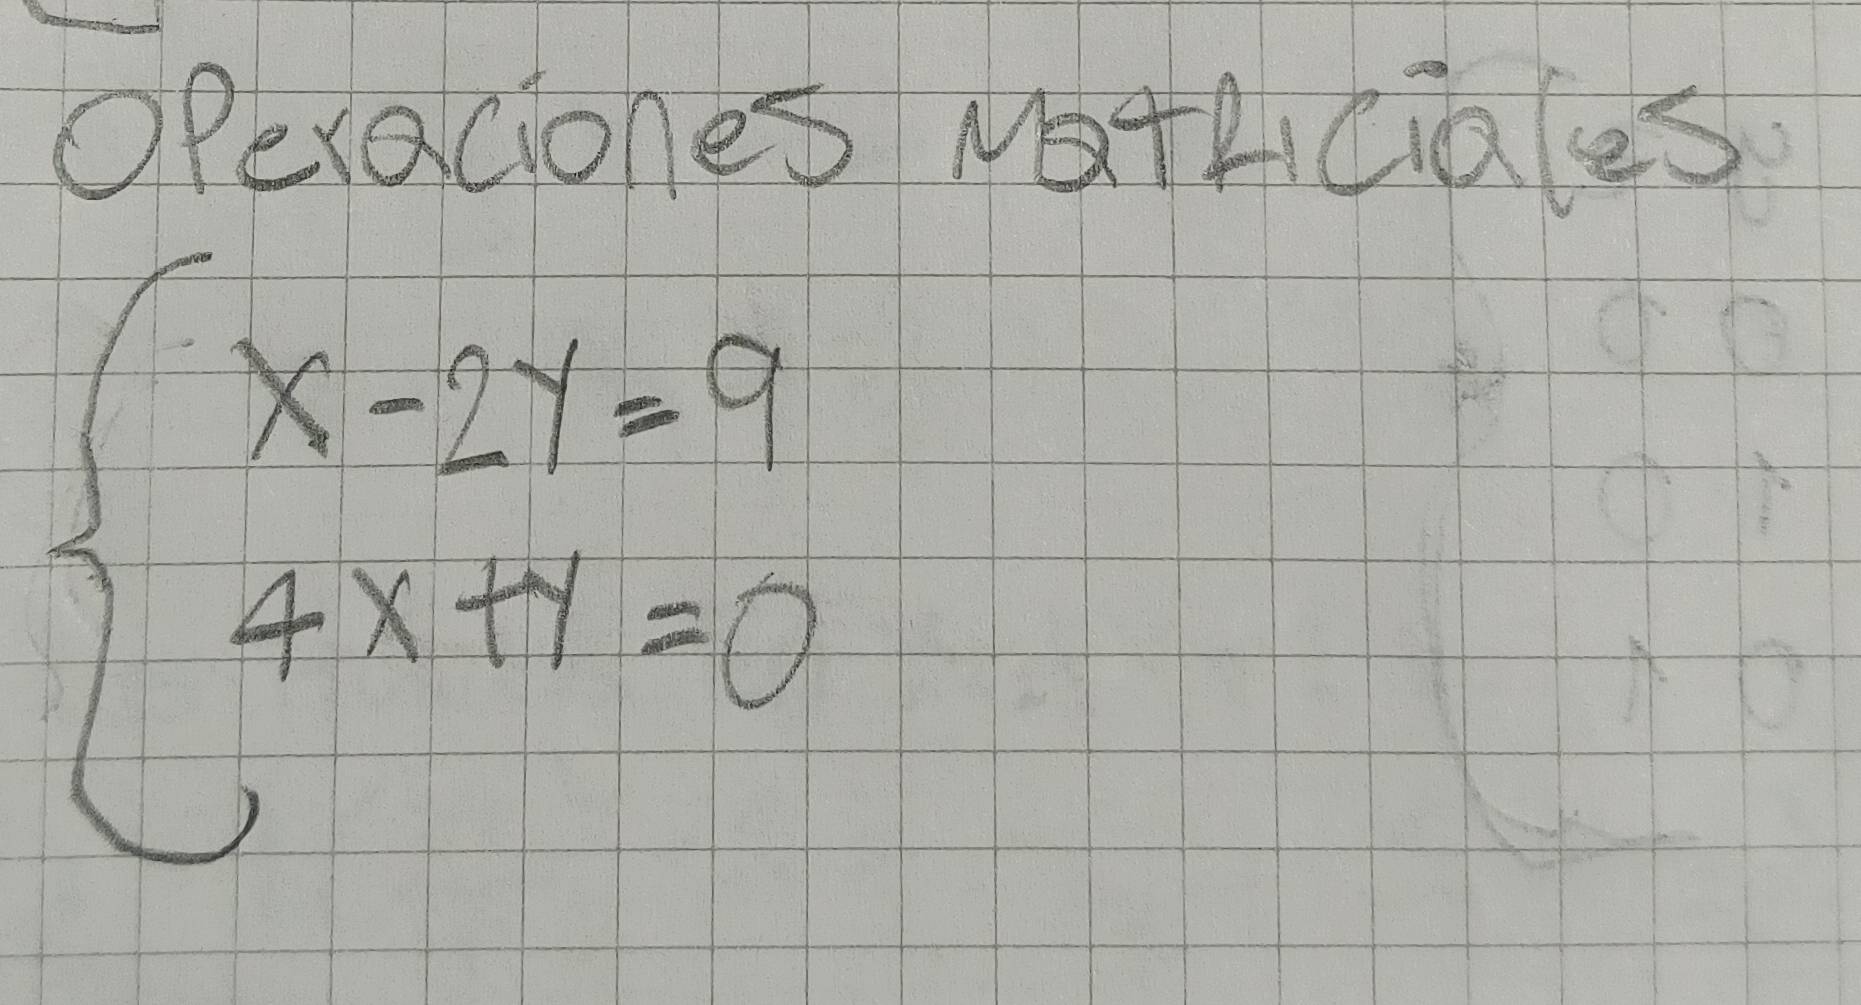 Operaciones Matriciales
x - 2y = 9
4x + y = 0